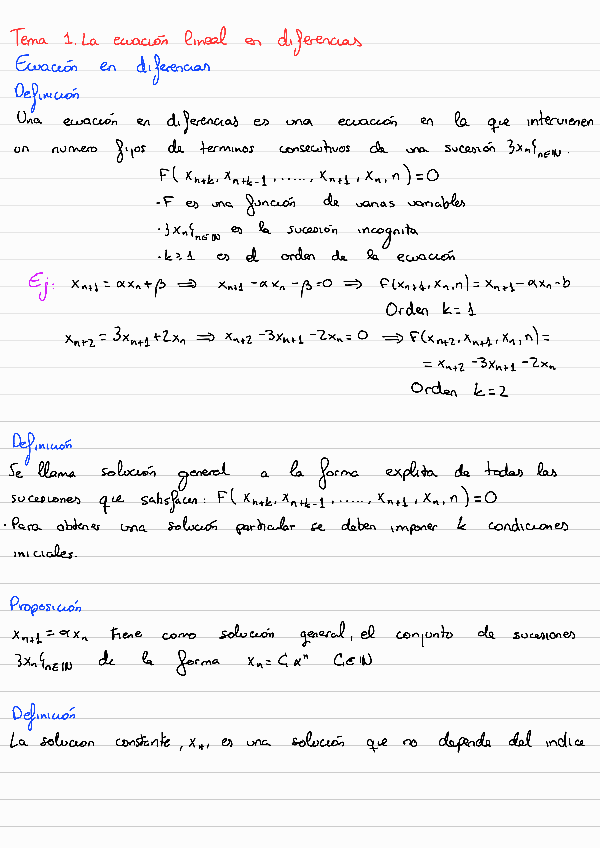 Tema 1. La ecuación lineal en diferencias
Ecuación en diferencias
Definición
Una ecuación en diferencias es una ecuación en la que intervienen
un numero fijos de terminos consecutivos de una sucesión }xₙ{ₙ∈ℕ.
F(xₙ₊ₖ, xₙ₊ₖ₋₁, ......, xₙ₊₁, xₙ, n) = 0
·F es una función de varias variables
·}xₙ{ₙ∈ℕ es la sucesión incognita
·k≥1 es el orden de la ecuación
Ej: xₙ₊₁ = αxₙ+β ⟹ xₙ₊₁ -αxₙ -β=0 ⟹ F(xₙ₊₁, xₙ, n) = xₙ₊₁-αxₙ-b
Orden k=1
xₙ₊₂ = 3xₙ₊₁+2xₙ ⟹ xₙ₊₂ -3xₙ₊₁ -2xₙ=0 ⟹ F(xₙ₊₂, xₙ₊₁, xₙ, n) =
= xₙ₊₂ -3xₙ₊₁ -2xₙ
Orden k=2
Definición
Se llama solución general a la forma explita de todas las
sucesiones que satisfacen: F(xₙ₊ₖ, xₙ₊ₖ₋₁, ......, xₙ₊₁, xₙ, n) = 0
·Para obtener una solución particular se deben imponer k condiciones
iniciales.
Proposición
xₙ₊₁ = αxₙ tiene como solución general, el conjunto de sucesiones
}xₙ{ₙ∈ℕ de la forma xₙ = C αⁿ C∈ℕ
Definición
La solucion constante, x*, es una solución que no depende del indice